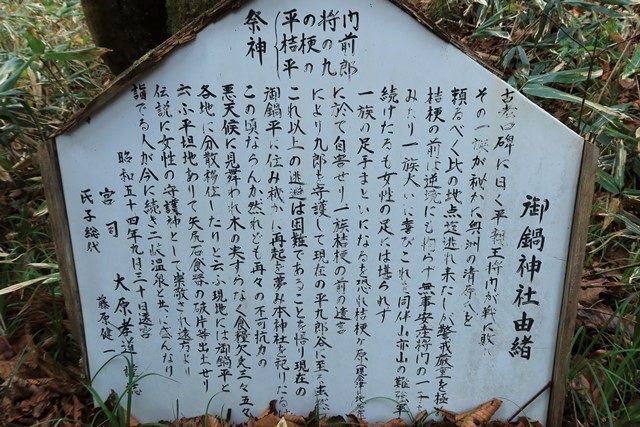 御鍋神社由緒
古老口碑に曰く平親王将門が戦に敗
その一族が秘かに奥州の清原氏を
頼るべく此の地点迄逃れ来たしが警戒厳重を極
桔梗の前は逆流にも拘らず無事安産将門の一子
みたり一族大いに喜びこれを同伴山亦山の難行
続けたるも女性の足には堪られず
一族の足手まといになるを恐れ桔梗ヶ原
に於て自害せり一族桔梗の前の遺言
により九郎を守護して現在の平九郎谷に至
これ以上の逃避は困難であることを悟り現在の
御鍋平に住み秘かに再起を夢み本神社を祀りたる
この頃ならんか然れども再々の不可抗力の
悪天候に見舞われ木の実すらなく食糧欠乏三々五々
各地に分散移住したりと云ふ現地には御鍋平と
云ふ平坦地ありて矢尻石食器の破片等出土せり
伝説に女性の守護神として崇敬され遠方より
詣でる人が今に続き二岐温泉と共に
昭和五十四年九月二十一日
宮司 大原
氏子総代 藤原健一
祭神
平将門
桔梗の前
平九郎